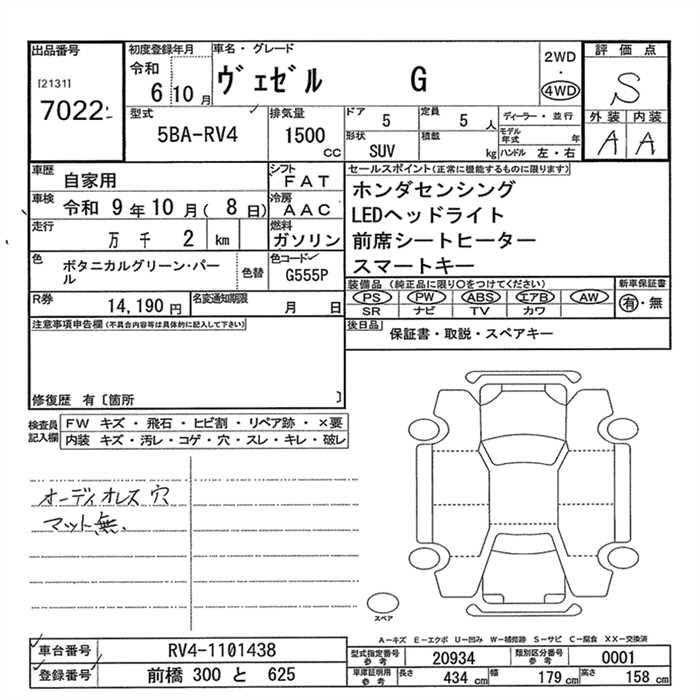 出品番号
[2131]
7022
初度登録年月
令和
6 10 月
車名・グレード
ヴェゼル G
2WD
・
4WD
評価点
S
外装 内装
A A
型式
5BA-RV4
排気量
1500
CC
ドア
5
定員
5 人
形状
SUV
積載
kg
ディーラー・並行
モデル年式 年
ハンドル 左・右
車歴
自家用
シフト
FAT
車検
令和 9 年 10 月( 8 日)
冷房
AAC
走行
万 千 2 km
燃料
ガソリン
色
ボタニカルグリーン・パール
色替
色コード
G555P
R券
14,190 円
名変通知期限
月 日
セールスポイント(正常に機能するものに限ります)
ホンダセンシング
LEDヘッドライト
前席シートヒーター
スマートキー
装備品 (純正品に限り○をつけてください)
PS PW ABS エアB AW
SR ナビ TV カワ
新車保証書
有・無
後日品
保証書・取説・スペアキー
注意事項申告欄(不具合内容等は具体的に記入して下さい)
修復歴 有〔箇所 〕
検査員記入欄
FW キズ・飛石・ヒビ割・リペア跡・×要
内装 キズ・汚レ・コゲ・穴・スレ・キレ・破レ
オーディオレス 穴
マット無、
スペア
A-キズ E-エクボ U-凹み W-補修跡 S-サビ C-腐食 XX-交換済
車台番号
RV4-1101438
登録番号
前橋 300 と 625
型式指定番号参考
20934
類別区分番号参考
0001
車庫証明用参考
長さ 434 cm
幅 179 cm
高さ 158 cm